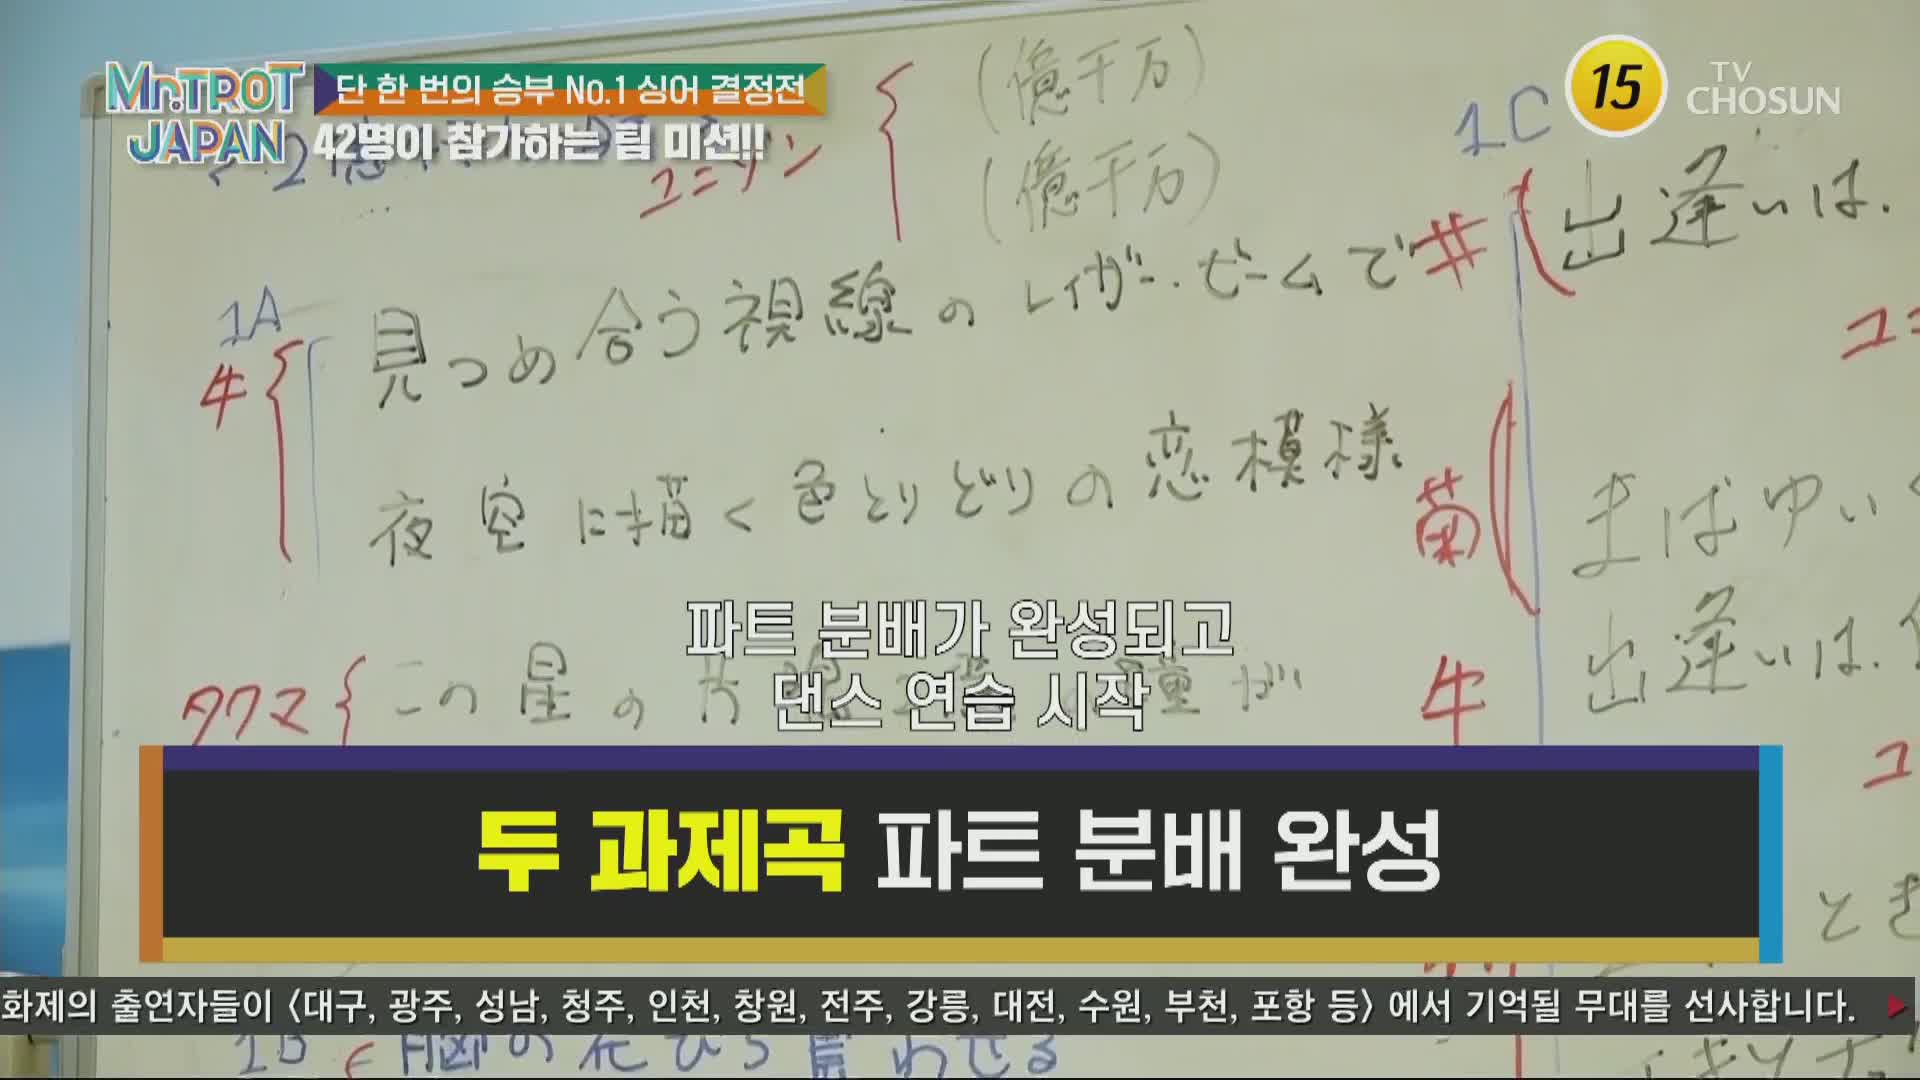 Mr.TROT JAPAN
단 한 번의 승부 No.1 싱어 결정전
42명이 참가하는 팀 미션!!
15
TV CHOSUN
ユニゾン
(億千万)
(億千万)
1A
牛
見つめ合う視線のレイザービームで
夜空に描く色とりどりの恋模様
タクマ
この星の片隅
瞳が
1B
の花びら
わせる
1C
井
出逢いは
ユニ
菊
まばゆい
牛
出逢いは
ユ
とき
파트 분배가 완성되고
댄스 연습 시작
두 과제곡 파트 분배 완성
화제의 출연자들이 <대구, 광주, 성남, 청주, 인천, 창원, 전주, 강릉, 대전, 수원, 부천, 포항 등> 에서 기억될 무대를 선사합니다.